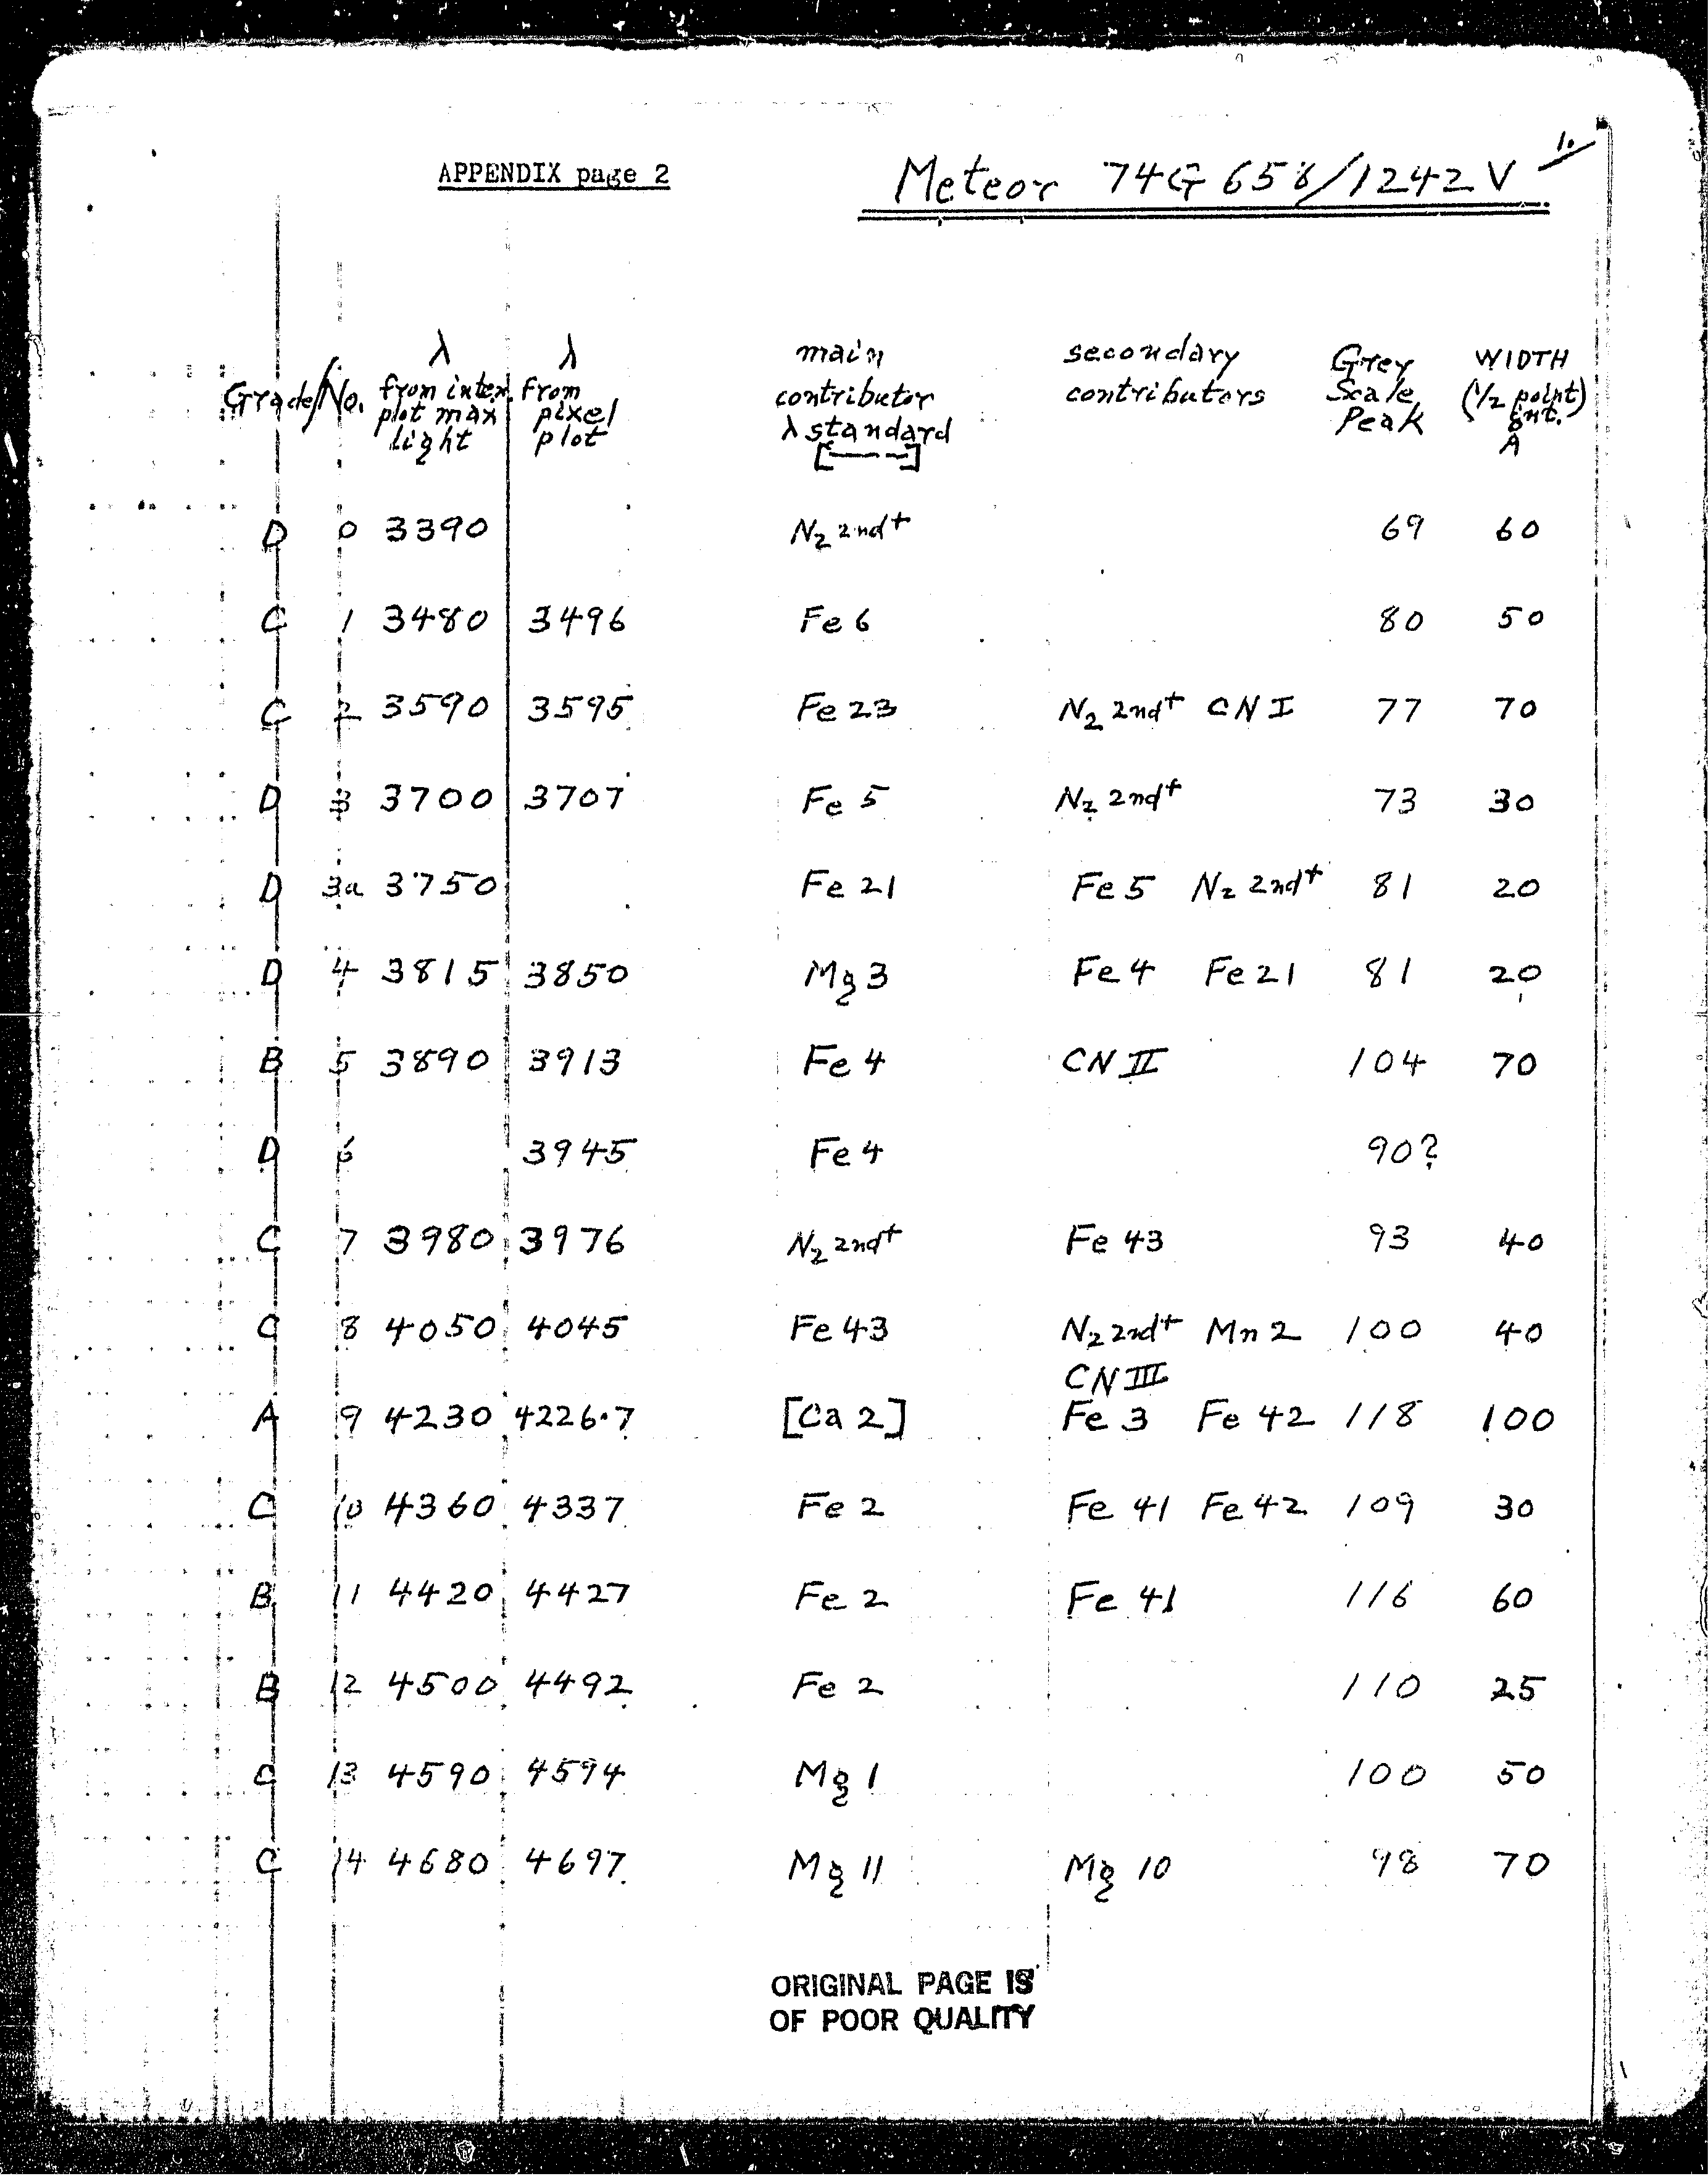 APPENDIX page 2
Meteor 74G 658/1242 V 1.
Grade/No. λ from inten. plot max light λ from pixel plot main contributor λ standard [----] secondary contributors Grey Scale Peak WIDTH (1/2 point) Int. A
D 0 3390 N2 2nd+ 69 60
C 1 3480 3496 Fe 6 80 50
C 2 3590 3595 Fe 23 N2 2nd+ CN I 77 70
D 3 3700 3707 Fe 5 N2 2nd+ 73 30
D 3a 3750 Fe 21 Fe 5 N2 2nd+ 81 20
D 4 3815 3850 Mg 3 Fe 4 Fe 21 81 20
B 5 3890 3913 Fe 4 CN II 104 70
D 6 3945 Fe 4 90?
C 7 3980 3976 N2 2nd+ Fe 43 93 40
C 8 4050 4045 Fe 43 N2 2nd+ Mn 2 100 40
CN III
A 9 4230 4226.7 [Ca 2] Fe 3 Fe 42 118 100
C 10 4360 4337 Fe 2 Fe 41 Fe 42 109 30
B 11 4420 4427 Fe 2 Fe 41 116 60
B 12 4500 4492 Fe 2 110 25
C 13 4590 4594 Mg 1 100 50
C 14 4680 4697 Mg 11 Mg 10 98 70
ORIGINAL PAGE IS
OF POOR QUALITY